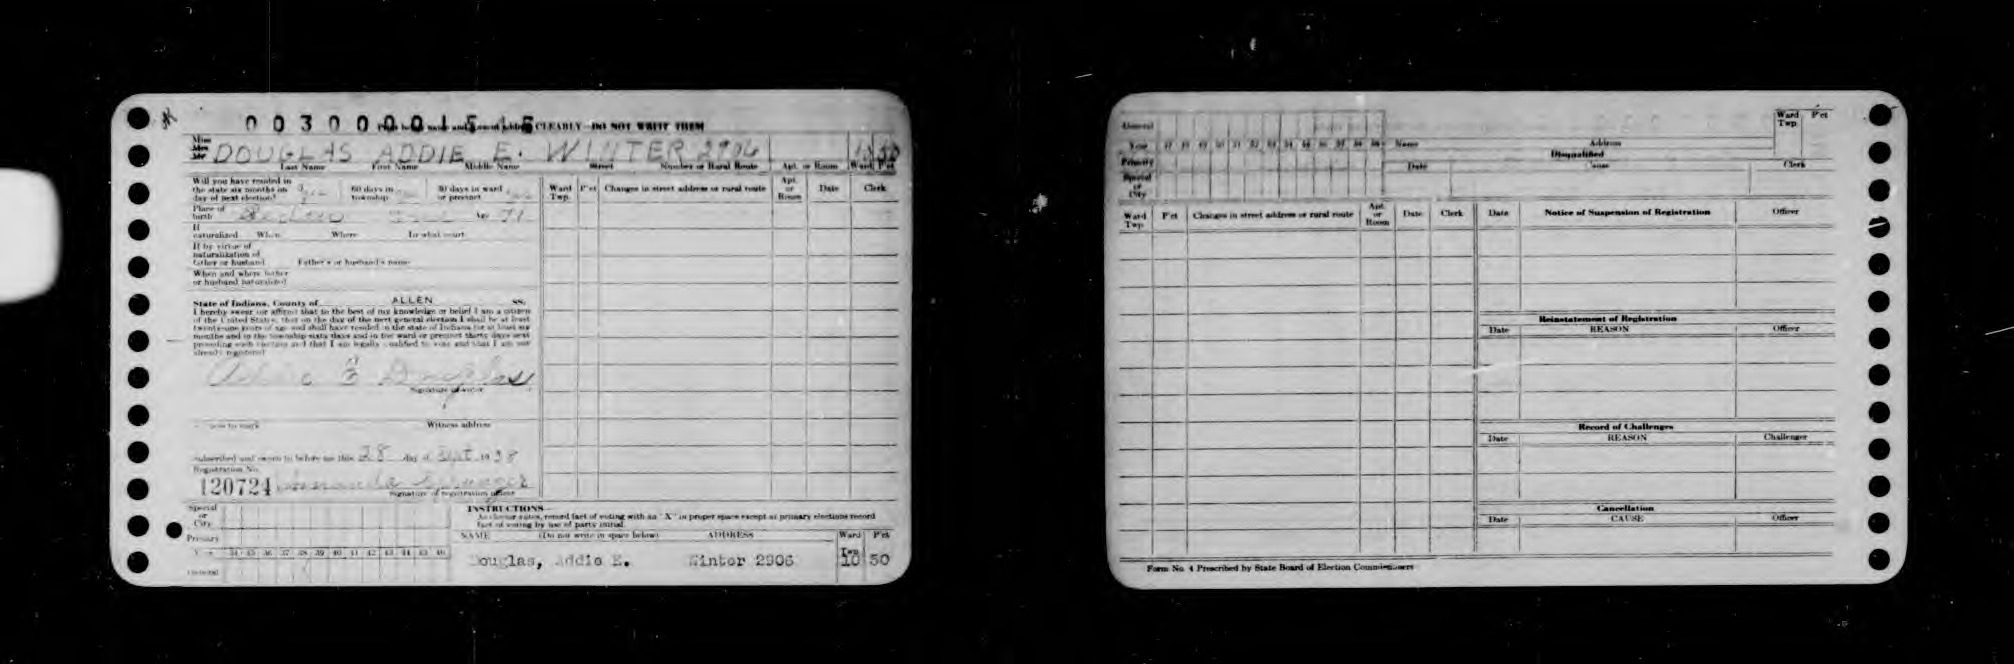 0 0 3 0 0 0 0 1 5 1 5 CLEARLY—DO NOT WRITE THEM
Miss
Mrs
Mr DOUGLAS ADDIE E. WINTER 2906 10 50
Last Name First Name Middle Name Street Number or Rural Route Apt. or Room Ward Pct
Will you have resided in
the state six months on 60 days in 30 days in ward
day of next election? township or precinct
Place of
birth Age 71
If
naturalized When Where In what court
If by virtue of
naturalization of
father or husband Father's or husband's name
When and where father
or husband naturalized
State of Indiana, County of ALLEN ss.
I hereby swear (or affirm) that to the best of my knowledge or belief I am a citizen
of the United States, that on the day of the next general election I shall be at least
twenty-one years of age and shall have resided in the state of Indiana for at least six
months and in the township sixty days and in the ward or precinct thirty days next
preceding such election and that I am legally qualified to vote and that I am not
already registered
Addie E Douglas
Signature of voter
Witness address
Subscribed and sworn to before me this 28 day of Sept 1938
Registration No.
120724
Signature of registration officer
Ward Twp. P'ct Changes in street address or rural route Apt. or Room Date Clerk
Special
or
City
Primary
Year 34 35 36 37 38 39 40 41 42 43 44 45 46
General
INSTRUCTIONS—
As elector votes, record fact of voting with an "X" in proper space except at primary elections record
fact of voting by use of party initial.
NAME (Do not write in space below) ADDRESS Ward Twp P'ct
Douglas, Addie E. Winter 2906 10 50
General
Year 47 48 49 50 51 52 53 54 55 56 57 58 59 Name Address Ward Twp. P'ct
Primary
Special
or
City
Disqualified
Date Cause Clerk
Ward Twp. P'ct Changes in street address or rural route Apt. or Room Date Clerk
Date Notice of Suspension of Registration Officer
Reinstatement of Registration
Date REASON Officer
Record of Challenges
Date REASON Challenger
Cancellation
Date CAUSE Officer
Form No. 4 Prescribed by State Board of Election Commissioners